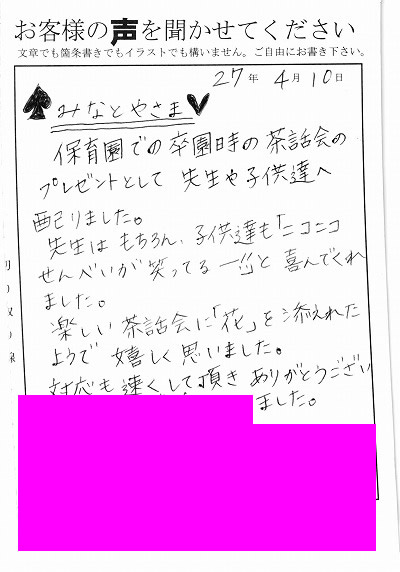 お客様の声を聞かせてください
文章でも箇条書きでもイラストでも構いません。ご自由にお書き下さい。
27年 4月 10日
みなとやさま
保育園での卒園時の茶話会の
プレゼントとして 先生や子供達へ
配りました。
先生はもちろん、子供達も「ニコニコ
せんべいが笑ってる」と喜んでくれ
ました。
楽しい茶話会に「花」を添えれた
ようで 嬉しく思いました。
対応も速くして頂き ありがとうござい
ました。